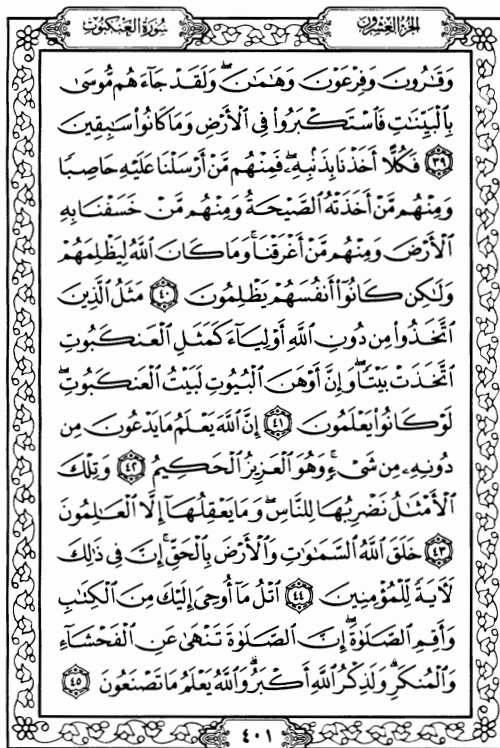 سُورَةُ العَنكَبُوتِ
الجُزءُ العِشرُونَ
وَقَٰرُونَ وَفِرْعَوْنَ وَهَٰمَٰنَ ۖ وَلَقَدْ جَآءَهُم مُّوسَىٰ
بِٱلْبَيِّنَٰتِ فَٱسْتَكْبَرُوا۟ فِى ٱلْأَرْضِ وَمَا كَانُوا۟ سَٰبِقِينَ
﴿٣٩﴾ فَكُلًّا أَخَذْنَا بِذَنۢبِهِۦ ۖ فَمِنْهُم مَّنْ أَرْسَلْنَا عَلَيْهِ حَاصِبًا
وَمِنْهُم مَّنْ أَخَذَتْهُ ٱلصَّيْحَةُ وَمِنْهُم مَّنْ خَسَفْنَا بِهِ
ٱلْأَرْضَ وَمِنْهُم مَّنْ أَغْرَقْنَا ۚ وَمَا كَانَ ٱللَّهُ لِيَظْلِمَهُمْ
وَلَٰكِن كَانُوٓا۟ أَنفُسَهُمْ يَظْلِمُونَ ﴿٤٠﴾ مَثَلُ ٱلَّذِينَ
ٱتَّخَذُوا۟ مِن دُونِ ٱللَّهِ أَوْلِيَآءَ كَمَثَلِ ٱلْعَنكَبُوتِ
ٱتَّخَذَتْ بَيْتًا ۖ وَإِنَّ أَوْهَنَ ٱلْبُيُوتِ لَبَيْتُ ٱلْعَنكَبُوتِ ۖ
لَوْ كَانُوا۟ يَعْلَمُونَ ﴿٤١﴾ إِنَّ ٱللَّهَ يَعْلَمُ مَا يَدْعُونَ مِن
دُونِهِۦ مِن شَىْءٍ ۚ وَهُوَ ٱلْعَزِيزُ ٱلْحَكِيمُ ﴿٤٢﴾ وَتِلْكَ
ٱلْأَمْثَٰلُ نَضْرِبُهَا لِلنَّاسِ ۖ وَمَا يَعْقِلُهَآ إِلَّا ٱلْعَٰلِمُونَ
﴿٤٣﴾ خَلَقَ ٱللَّهُ ٱلسَّمَٰوَٰتِ وَٱلْأَرْضَ بِٱلْحَقِّ ۚ إِنَّ فِى ذَٰلِكَ
لَءَايَةً لِّلْمُؤْمِنِينَ ﴿٤٤﴾ ٱتْلُ مَآ أُوحِىَ إِلَيْكَ مِنَ ٱلْكِتَٰبِ
وَأَقِمِ ٱلصَّلَوٰةَ ۖ إِنَّ ٱلصَّلَوٰةَ تَنْهَىٰ عَنِ ٱلْفَحْشَآءِ
وَٱلْمُنكَرِ ۗ وَلَذِكْرُ ٱللَّهِ أَكْبَرُ ۗ وَٱللَّهُ يَعْلَمُ مَا تَصْنَعُونَ ﴿٤٥﴾
٤٠١